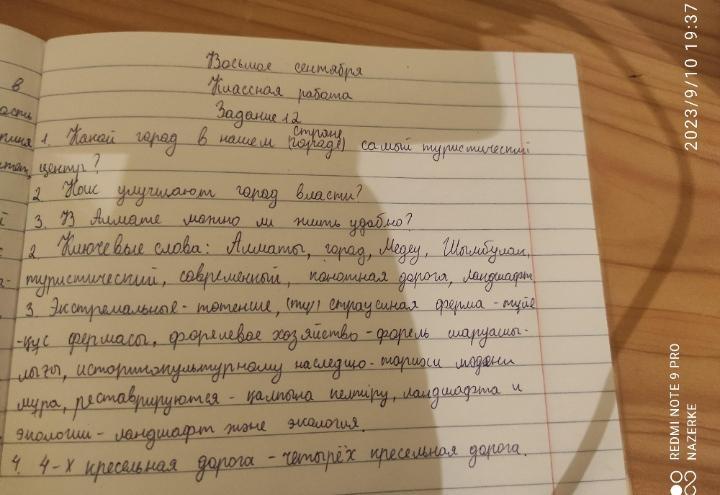 Восьмое сентября
Классная работа
Задание 12
1. Какой город в нашем (городе) стране самый туристический
центр?
2 Как улучшают город власти?
3. В Алмате можно ли жить удобно?
2 Ключевые слова: Алматы, город, Медеу, Шымбулак,
туристический, современный, канатная дорога, ландшафт
3 Экстремальные - тотенше, (туй) страусиная ферма - түйе
-құс фермасы, форелевое хозяйство - форель шаруашы-
лығы, историкокультурному наследию - тарихи мәдени
мұра, реставрируются - қалпына келтіру, ландшафта и
экологии - ландшафт және экология.
4. 4-х кресельная дорога - четырёх кресельная дорога.
в
2023/9/10 19:37
REDMI NOTE 9 PRO
NAZERKE